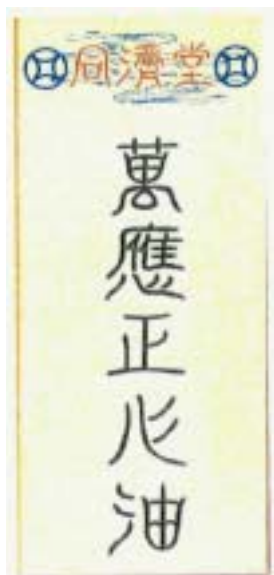 同濟堂
萬應正心油